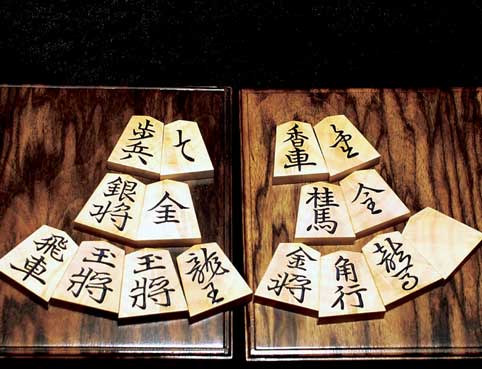 歩兵
と
銀将
全
飛車
玉将
玉将
龍王
香車
桂馬
全
金将
角行
龍馬